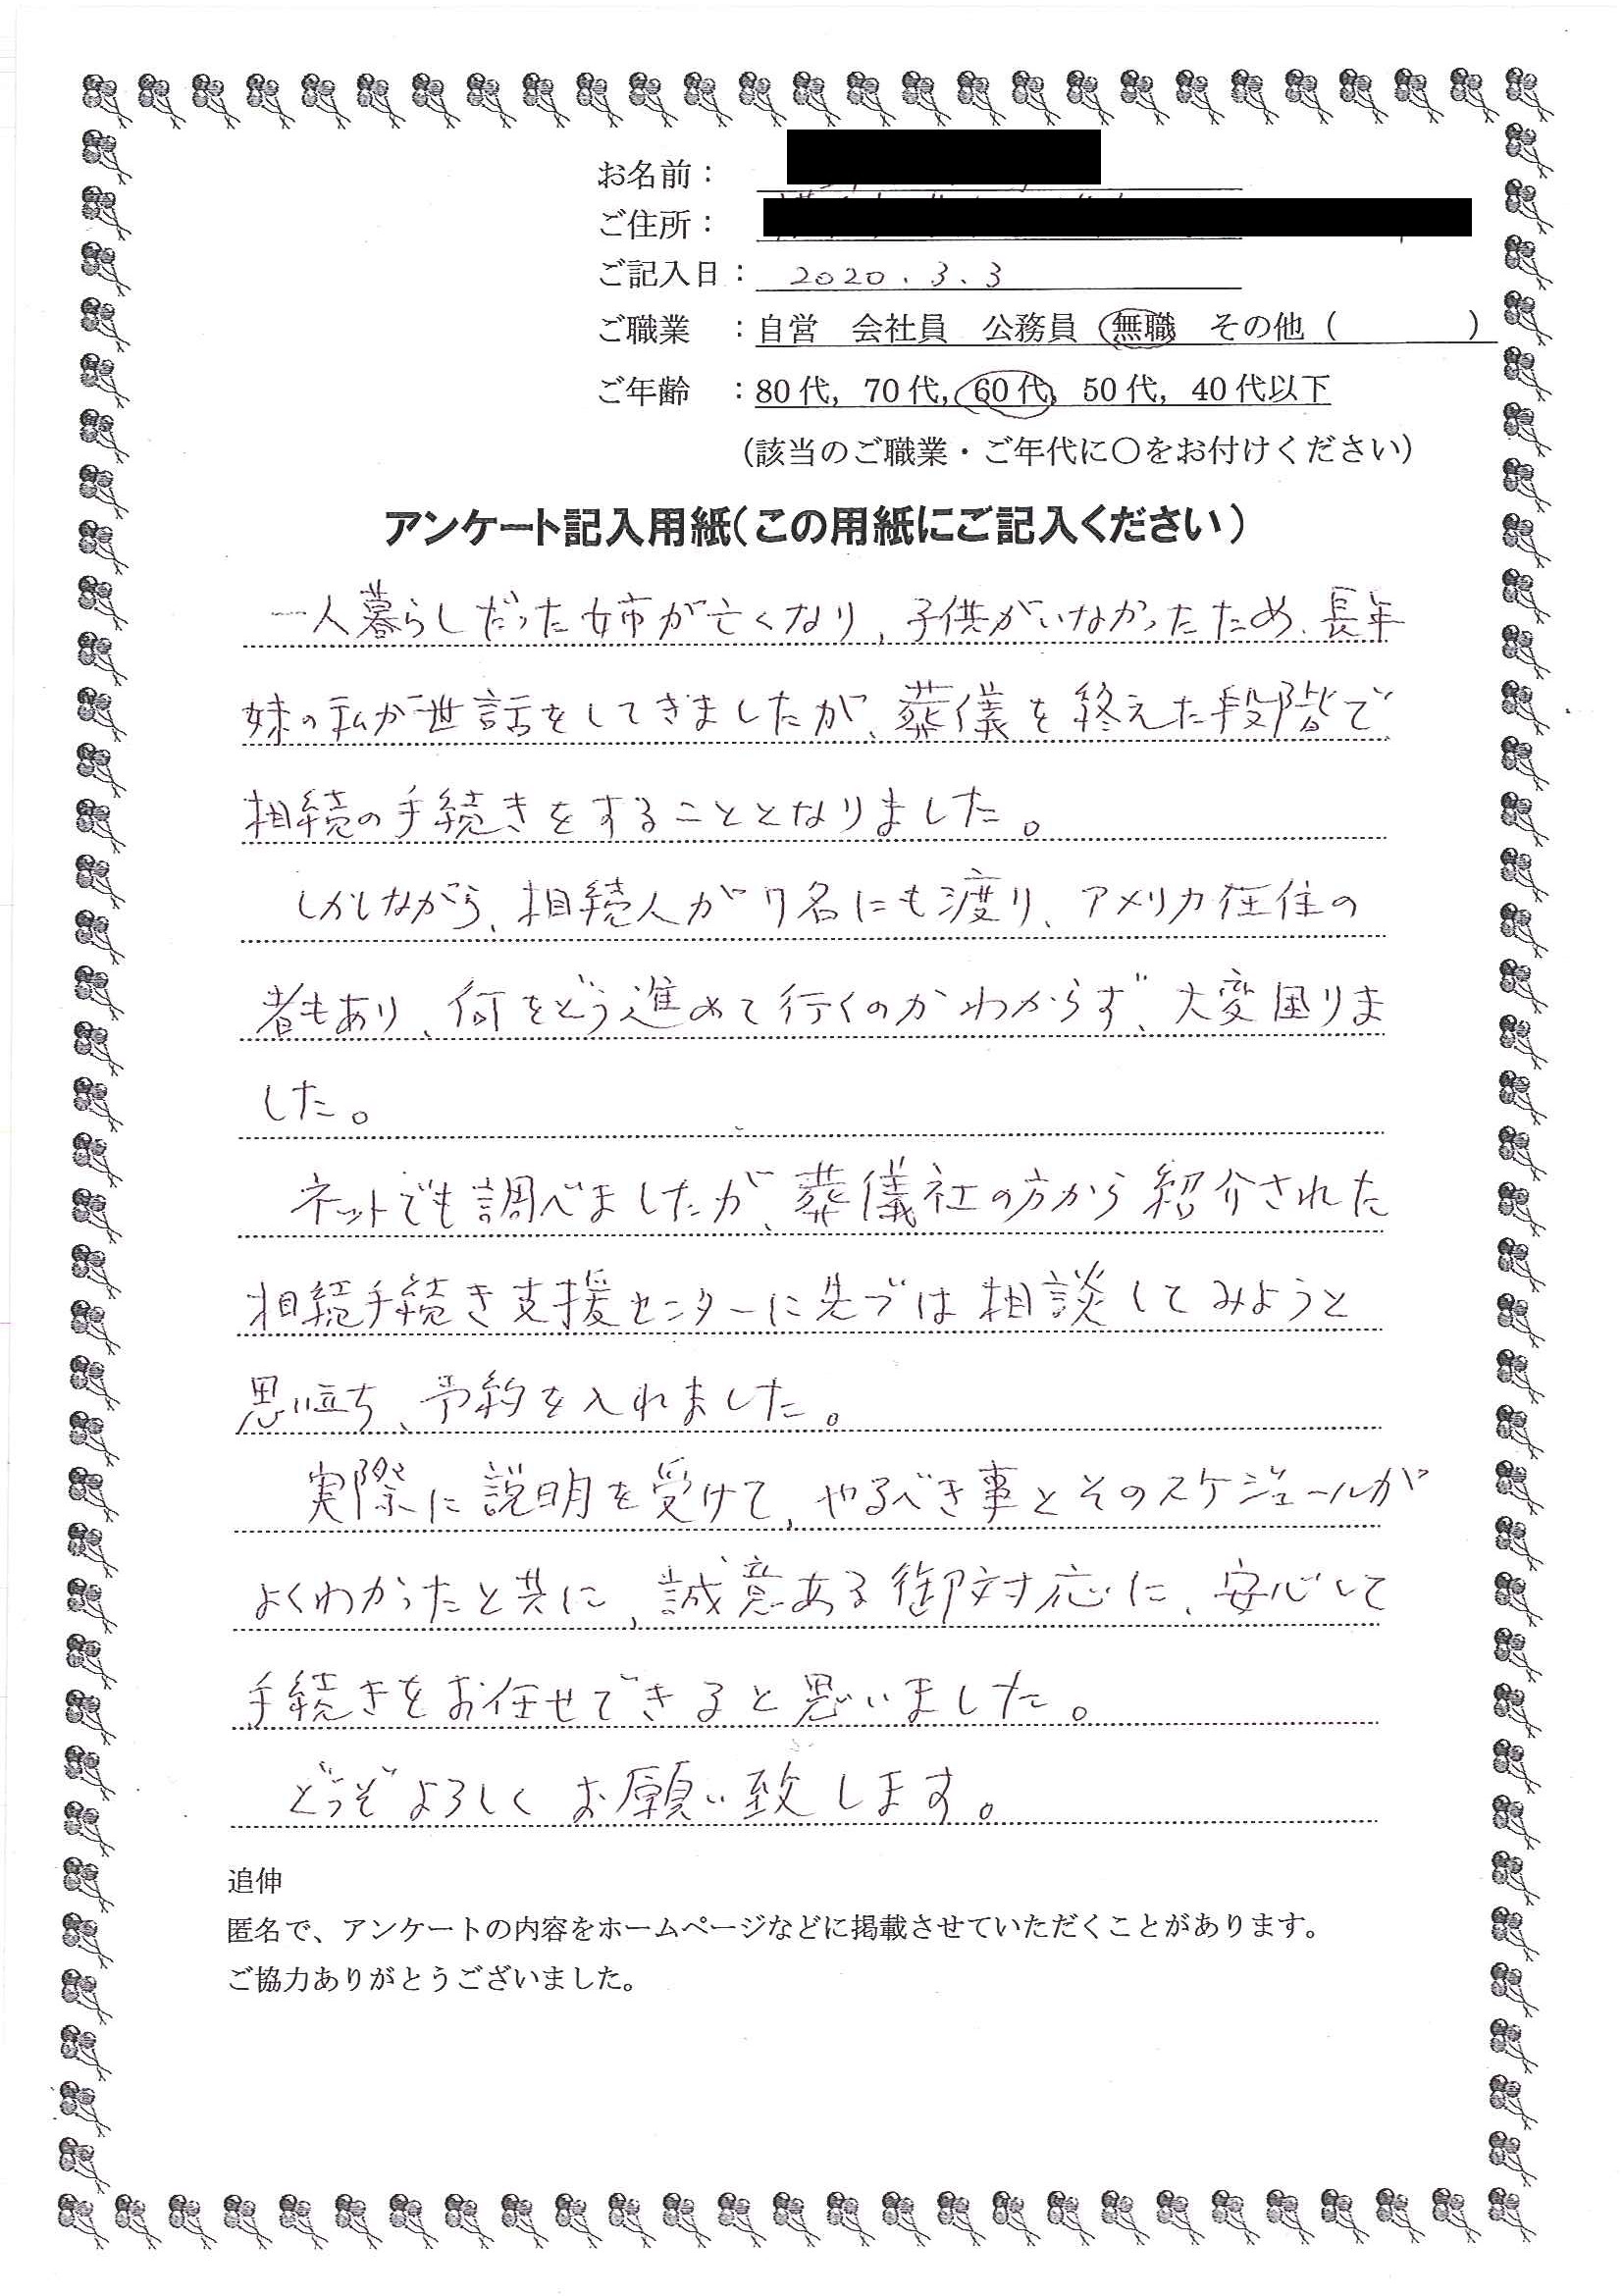 お名前：
ご住所：
ご記入日： 2020.3.3
ご職業 ：自営 会社員 公務員 無職 その他（ ）
ご年齢 ：80代，70代，60代，50代，40代以下
（該当のご職業・ご年代に〇をお付けください）
アンケート記入用紙（この用紙にご記入ください）
一人暮らしだった姉が亡くなり、子供がいなかったため、長年
妹の私が世話をしてきましたが、葬儀を終えた段階で
相続の手続きをすることとなりました。
しかしながら、相続人が7名にも渡り、アメリカ在住の
者もあり、何をどう進めて行くのかわからず、大変困りま
した。
ネットでも調べましたが、葬儀社の方から紹介された
相続手続き支援センターに先づは相談してみようと
思い立ち、予約を入れました。
実際に説明を受けて、やるべき事とそのスケジュールが
よくわかったと共に、誠意ある御対応に、安心して
手続きをお任せできると思いました。
どうぞよろしくお願い致します。
追伸
匿名で、アンケートの内容をホームページなどに掲載させていただくことがあります。
ご協力ありがとうございました。